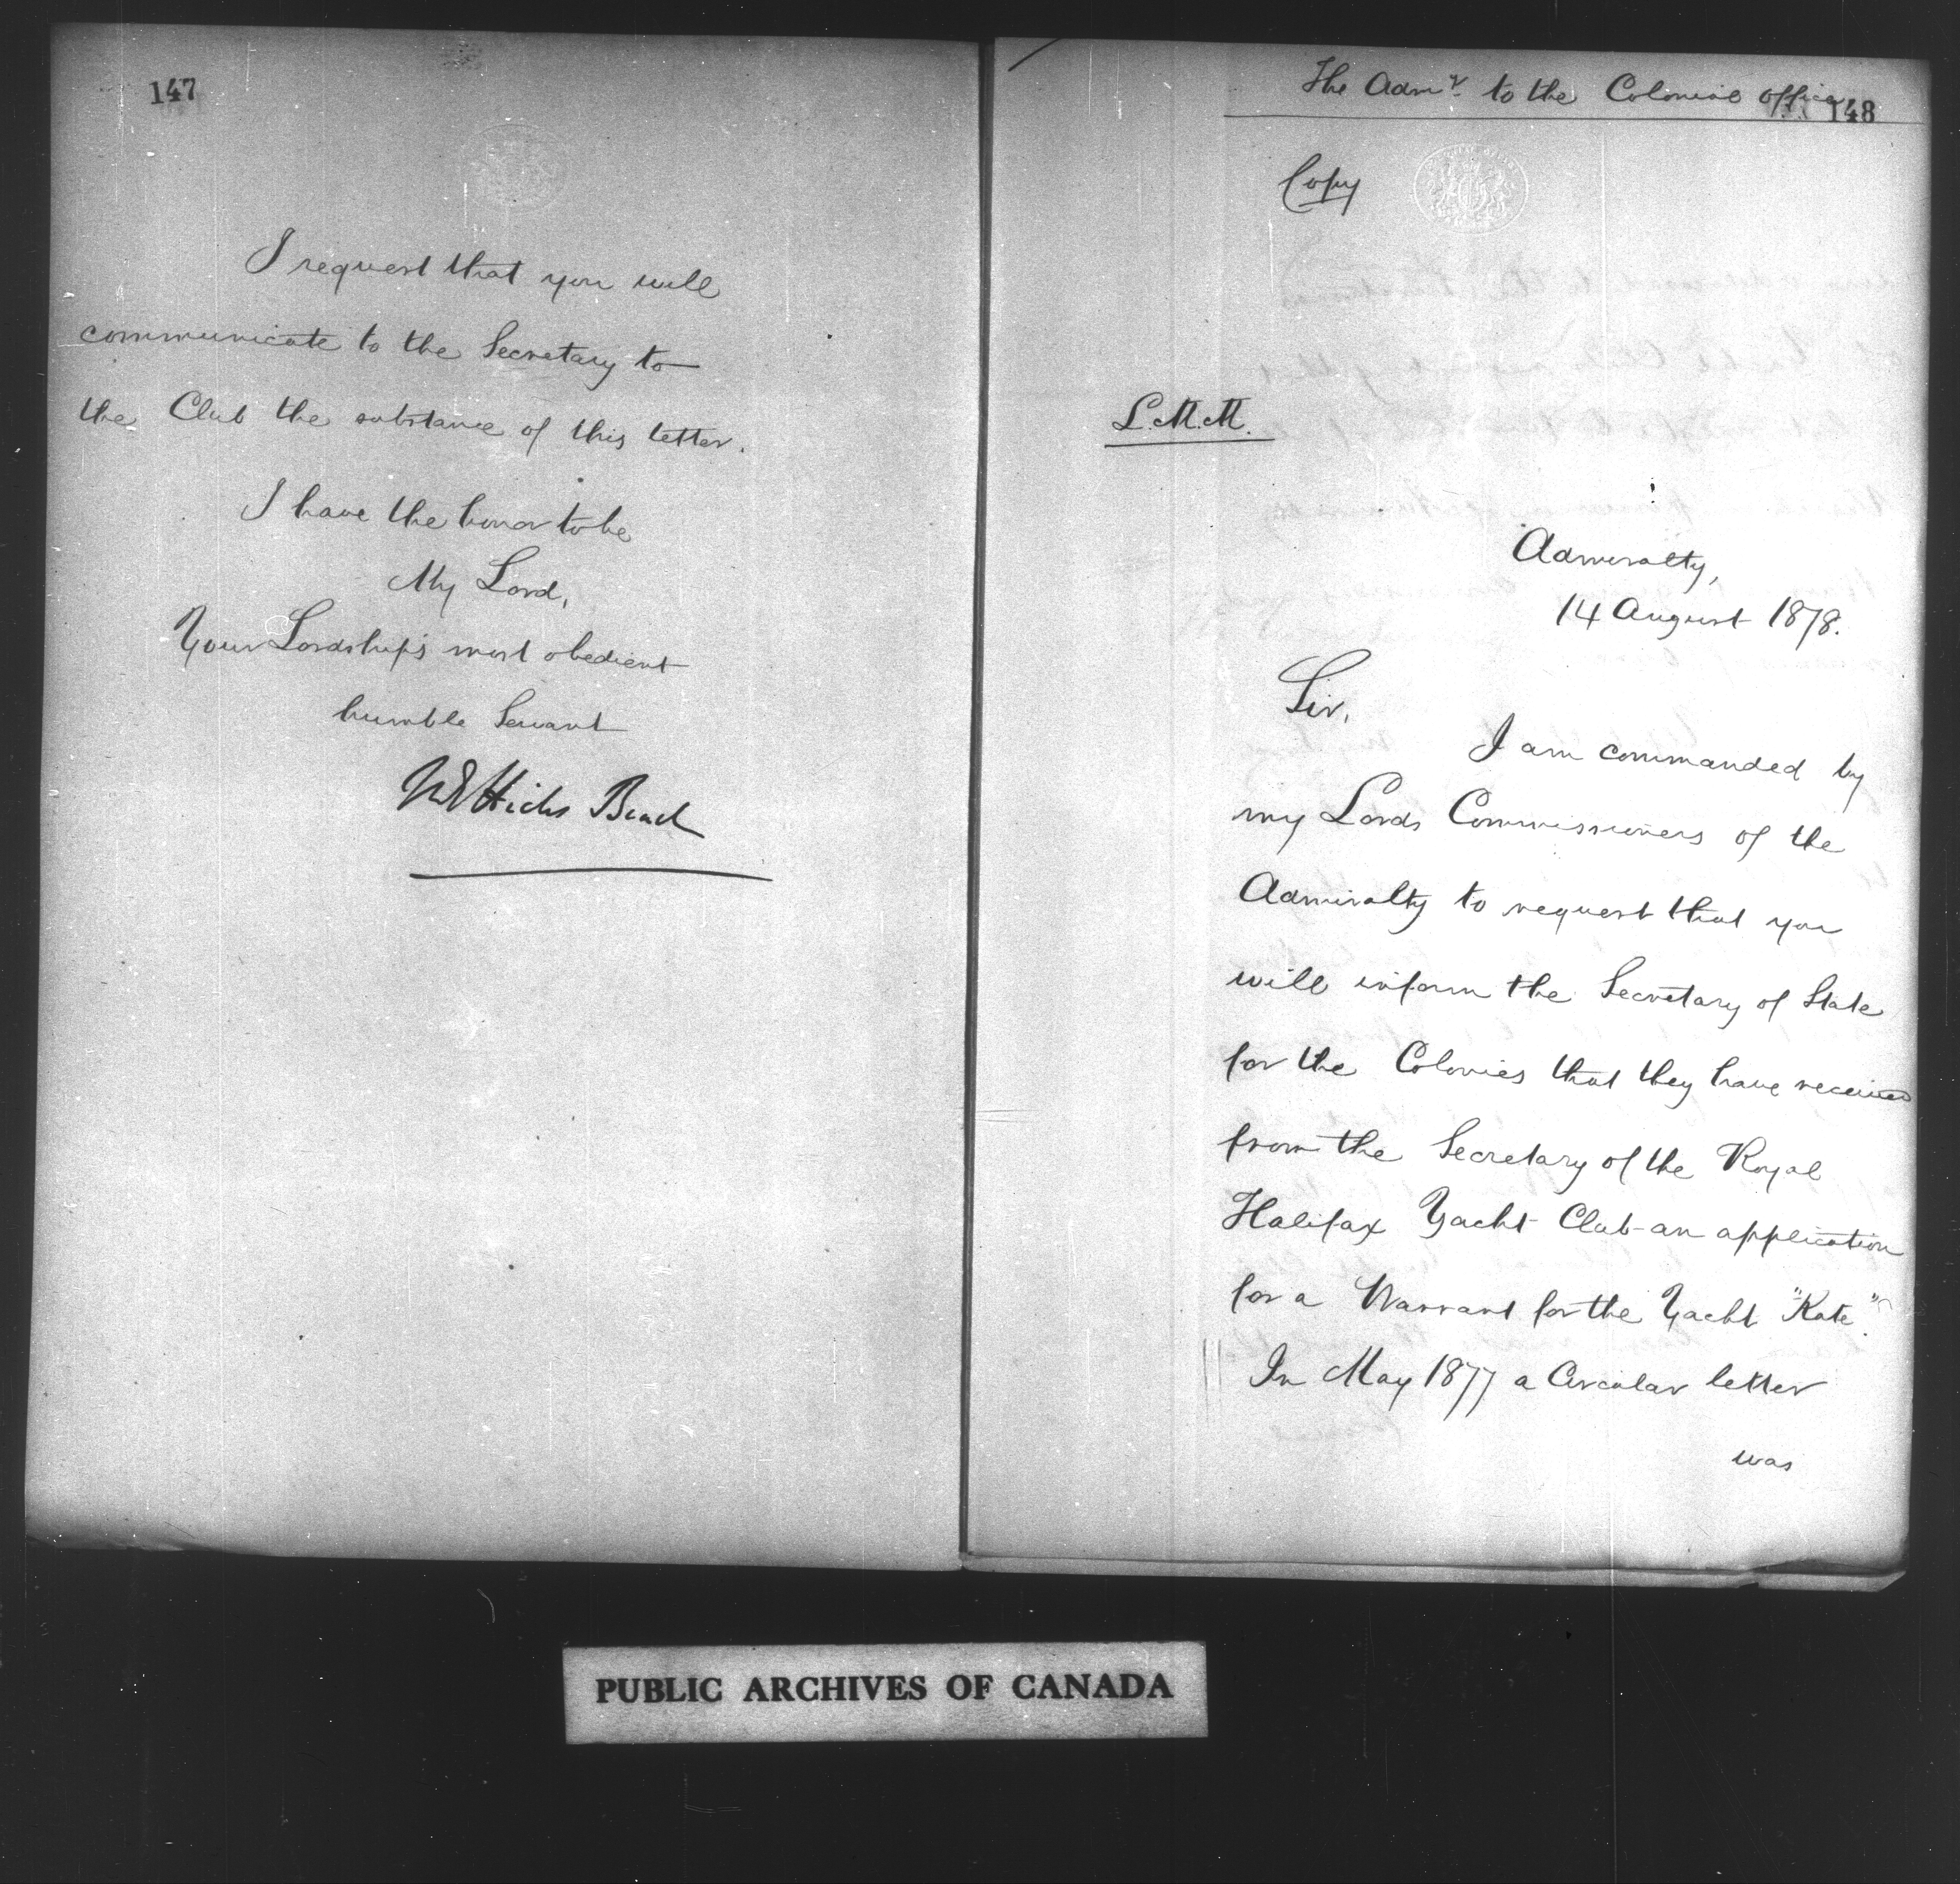 147
I request that you will
communicate to the Secretary to
the Club the substance of this letter.
I have the honor to be
My Lord,
Your Lordship's most obedient
humble Servant
M E Hicks Beach
The Admy. to the Colonial Office
148
Copy
L.M.M.
Admiralty,
14 August 1878.
Sir,
I am commanded by
my Lords Commissioners of the
Admiralty to request that you
will inform the Secretary of State
for the Colonies that they have received
from the Secretary of the Royal
Halifax Yacht Club an application
for a Warrant for the Yacht "Kate".
In May 1877 a Circular letter
was
PUBLIC ARCHIVES OF CANADA